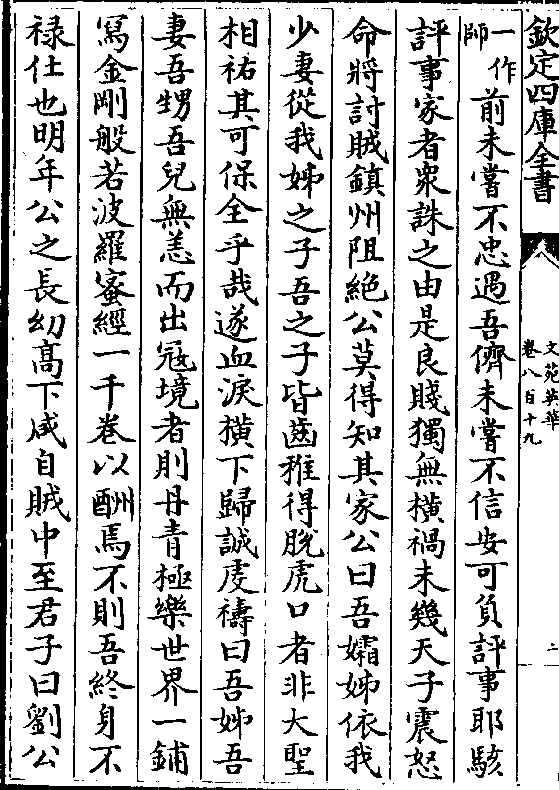 欽定四庫全書
文苑英華
卷八百十九
二
一作師前未嘗不忠遇吾儕未嘗不信安可負評事耶駭
評事家者衆誅之由是良賤獨無橫禍未幾天子震怒
命將討賊鎮州阻絶公莫得知其家公曰吾孀姊依我
少妻從我姊之子吾之子皆齒稚得脱虎口者非大聖
相祐其可保全乎哉遂血淚橫下歸誠虔禱曰吾姊吾
妻吾甥吾兒無恙而出冦境者則丹青極樂世界一鋪
冩金剛般若波羅蜜經一千卷以酬焉不則吾終身不
禄仕也明年公之長幼髙下咸自賊中至君子曰劉公